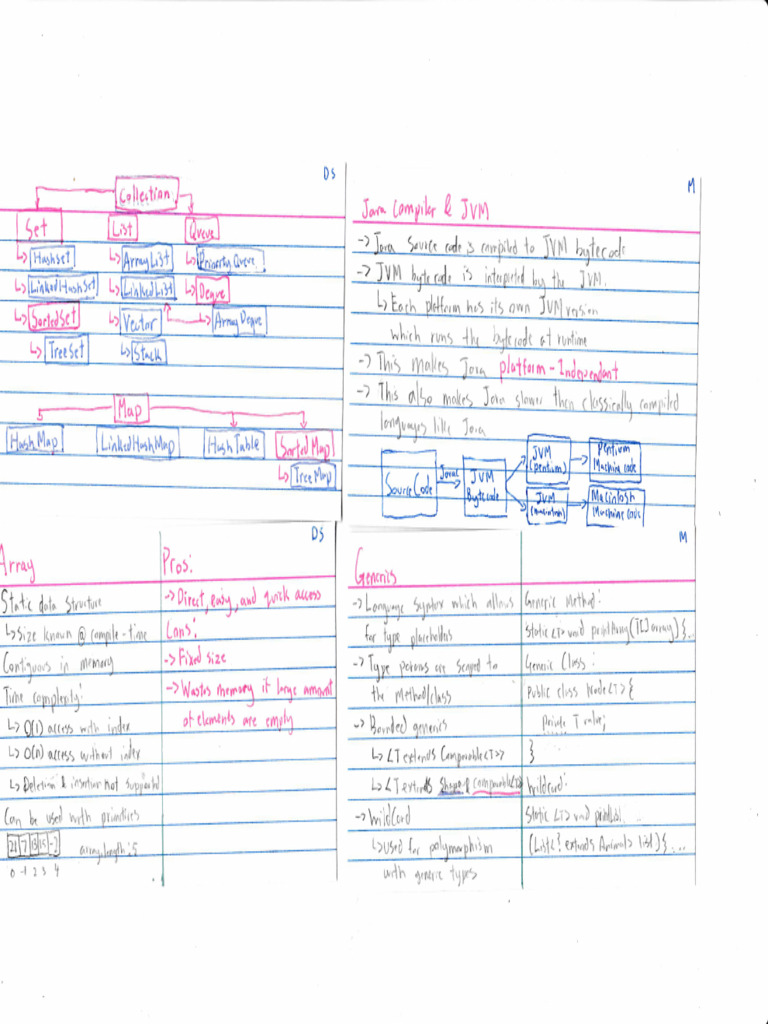 DS
Collection
Set List Queue
↳ HashSet ↳ ArrayList ↳ Priority Queue
↳ LinkedHashSet ↳ LinkedList ↳ Deque
↳ SortedSet ↳ Vector ↳ ArrayDeque
↳ TreeSet ↳ Stack
Map
HashMap LinkedHashMap HashTable SortedMap
↳ TreeMap
M
Java Compiler & JVM
-> Java source code is compiled to JVM bytecode
-> JVM bytecode is interpreted by the JVM.
↳ Each platform has its own JVM version
which runs the bytecode at runtime
-> This makes Java platform-Independant
-> This also makes Java slower then classically compiled
languages like Java
Source Code
Javac
JVM
Bytecode
JVM
(pentium)
Pentium
Machine code
JVM
(macintosh)
Macintosh
Machine Code
DS
Array
Static data structure
↳ Size known @ compile-time
Contiguous in memory
Time complexity:
↳ O(1) access with index
↳ O(n) access without index
↳ Deletion & insertion not supported
Can be used with primitives
21 7 13 15 -2 array.length: 5
0 1 2 3 4
Pros:
-> Direct, easy, and quick access
Cons:
-> Fixed size
-> Wastes memory if large amount
of elements are empty
M
Generics
-> Language syntax which allows
for type placeholders
-> Type params are scoped to
the Method/class
-> Bounded generics
↳ <T extends Comparable<T>>
↳ <T extends Shape & comparable<T>>
-> WildCard
↳ used for polymorphism
with generic types
Generic Method:
Static <T> void printArray(T[] array) {...
Generic Class:
Public class Node<T> {
Private T value;
}
Wildcard:
Static <T> void printList...
(List<? extends Animal> list) {...